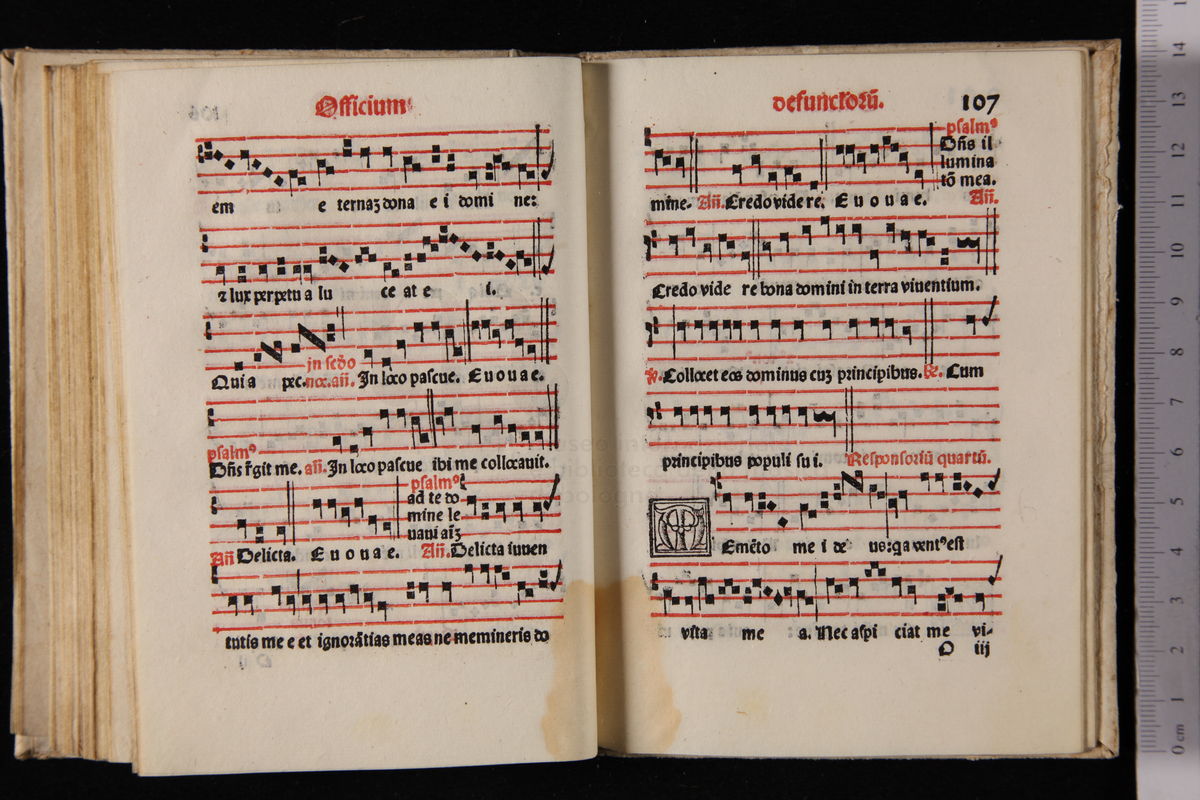 Officium
em e ternaʒ dona e i domi ne:
⁊ lux perpetu a lu ce at e i.
jn scḋo
Quia pec. noc. añ. Jn loco pascue. Euouae.
psalmꝰ
Dñs r̃git me. añ. Jn loco pascue ibi me collocauit.
psalmꝰ
ad te do
mine le
uaui aīʒ
Añ Delicta. Euouae. Añ. Delicta iuuen
tutis me e et ignorãtias meas ne memineris do
defunctorũ. 107
psalmꝰ
Dñs il
lumina
tõ mea.
mine. Añ. Credo videre. Euouae. Añ.
Credo vide re bona domini in terra viuentium.
℣. Collocet eos dominus cuʒ principibus. ℟. Cum
principibus populi su i. Responsoriũ quartũ.
MEmẽto me i de us: qa ventꝰ est
vita me a. Nec aspi ciat me vi-
O iij
0 cm 1 2 3 4 5 6 7 8 9 10 11 12 13 14